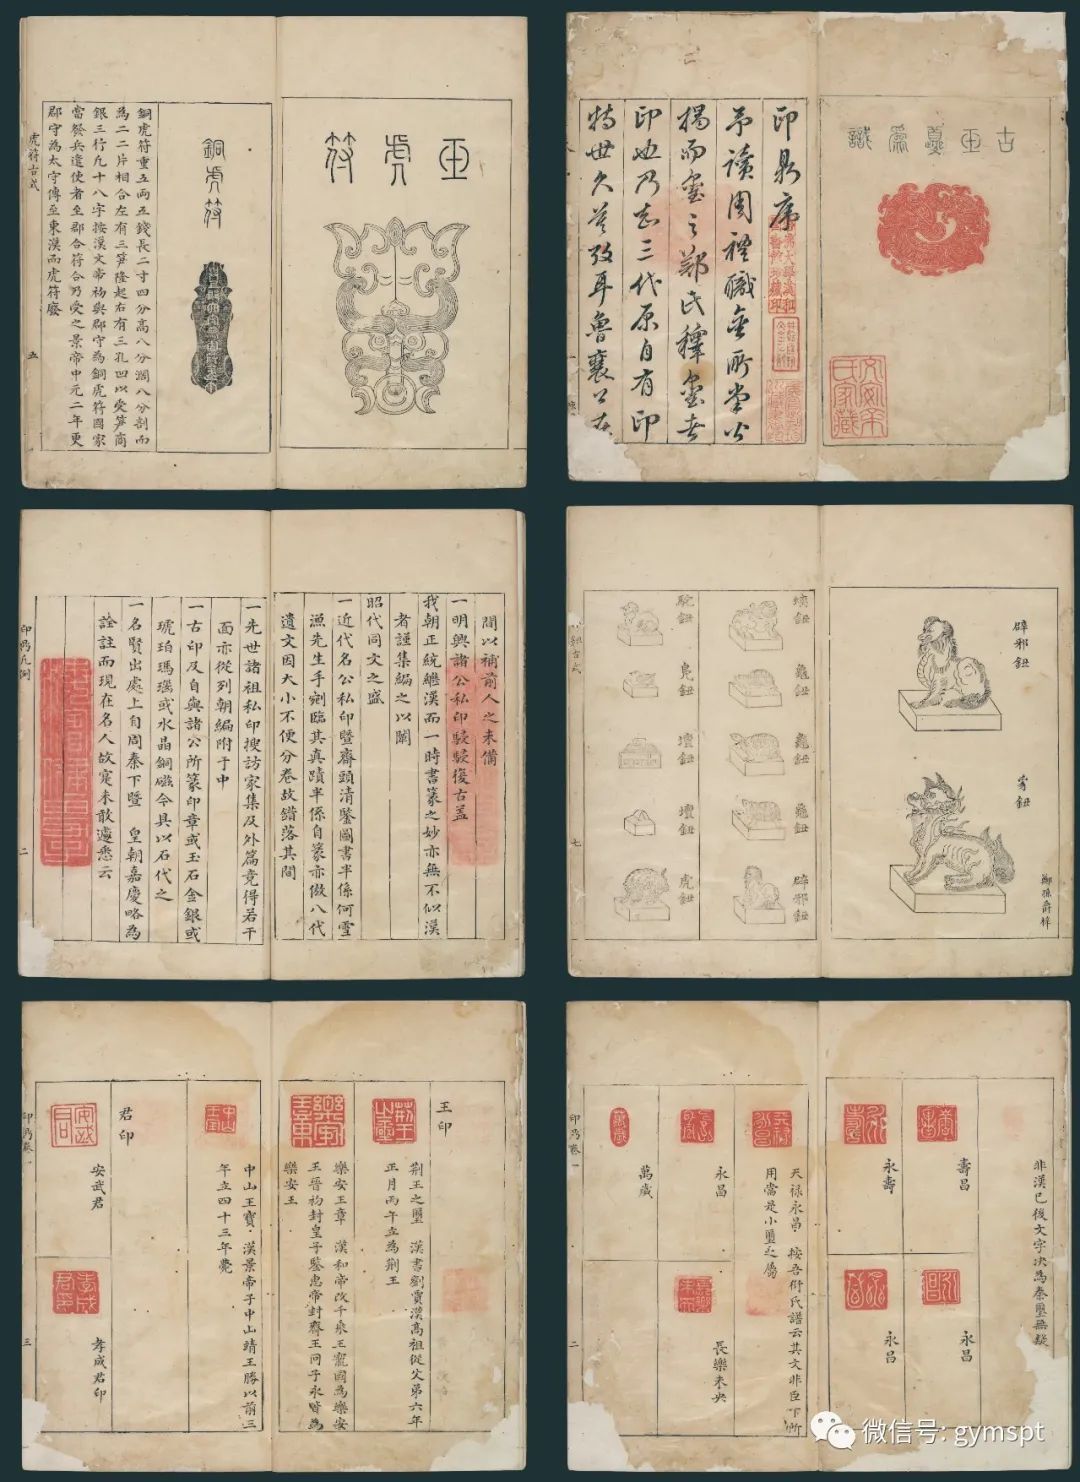 玉虎符
銅虎符
銅虎符重五兩五錢長二寸四分高八分濶八分剖而
為二二片相合左有三筍隆起右有三孔凹以受筍商
銀三行凡十八字按漢文帝初與郡守為銅虎符國家
當發兵遣使者至郡合符合乃受之景帝中元二年更
郡守為太守傳至東漢而虎符廢
虎符古式
五
文安余
氏家藏
予讀周禮職金所掌公
楬而璽之鄭氏釋璽者
印也乃知三代原自有印
特世久莫攷耳魯襄公在
間以補前人之未備
一明興諸公私印駸駸復古蓋
我朝正統繼漢而一時書篆之妙亦無不似漢
者謹集編之以闡
昭代同文之盛
一近代名公私印暨齋頭清鑒圖書半係何雪
漁先生手劖臨其真蹟半係自篆亦倣八代
遺文因大小不便分卷故錯落其間
一先世諸祖私印搜訪家集及外篇竟得若干
面亦從列朝編附于中
一古印及自與諸公所篆印章或玉石金銀或
琥珀瑪瑙或水晶銅磁今具以石代之
一名賢出處上自周秦下暨 皇朝嘉慶略為
詮註而現在名人故寔未敢遽悉云
二
辟邪鈕
龜鈕
龜鈕
龜鈕
辟邪鈕
駝鈕
鳧鈕
壇鈕
壇鈕
虎鈕
七
王印
荆王之璽 漢書劉賈漢高祖從父弟六年
正月丙午立為荆王
樂安王章 漢和帝改千乘王寵國為樂安
王晉初封皇子鑒惠帝封齊王冏子永皆為
樂安王
中山王寶 漢景帝子中山靖王勝以前三
年立四十三年薨
君印
安武君
孝成君印
三
非漢已後文字决為秦璽無疑
壽昌
永昌
永壽
永昌
天禄永昌 按吾衍氏譜云其文非臣下所
用當是小璽之屬
永昌
長樂未央
萬歲
二
微信号: gymspt